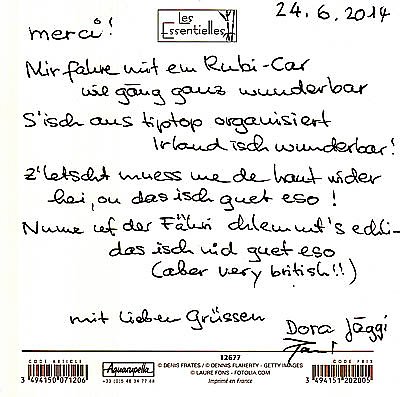 24.6.2014
merci!
Les
Essentielles
Mir fahre mit em Rubi-Car
wie gäng ganz wunderbar
S'isch aus tiptop organisiert
Irland isch wunderbar!
Z'letscht muess me de haut wider
hei, ou das isch guet eso!
Nume uf der Fähri chlemmt's echli-
das isch nid guet eso
(aber very british!!)
mit lieben Grüssen
Dora Jäggi
CODE ARTICLE
3 494150 071206
Aquarupella
+33 (0)5 48 34 77 66
12677
© DENIS FRATES / © DENNIS FLAHERTY - GETTY IMAGES
© LAURE FONS - FOTOLIA.COM
Imprimé en France
CODE PRIX
3 494151 202005